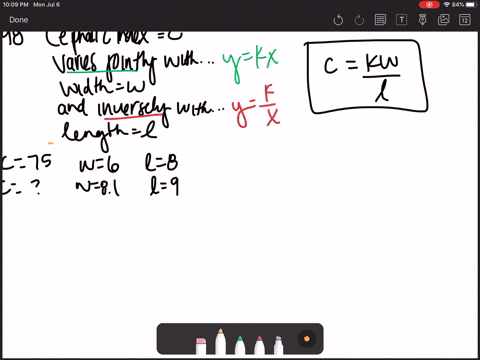 10:09 PM Mon Jul 6
84%
Done
T
12
98 Cephalic index = C
varies jointly with... y=kx
width = w
and inversely with... y=k/x
length = l
C = kw/l
C=75 w=6 l=8
C= ? w=8.1 l=9